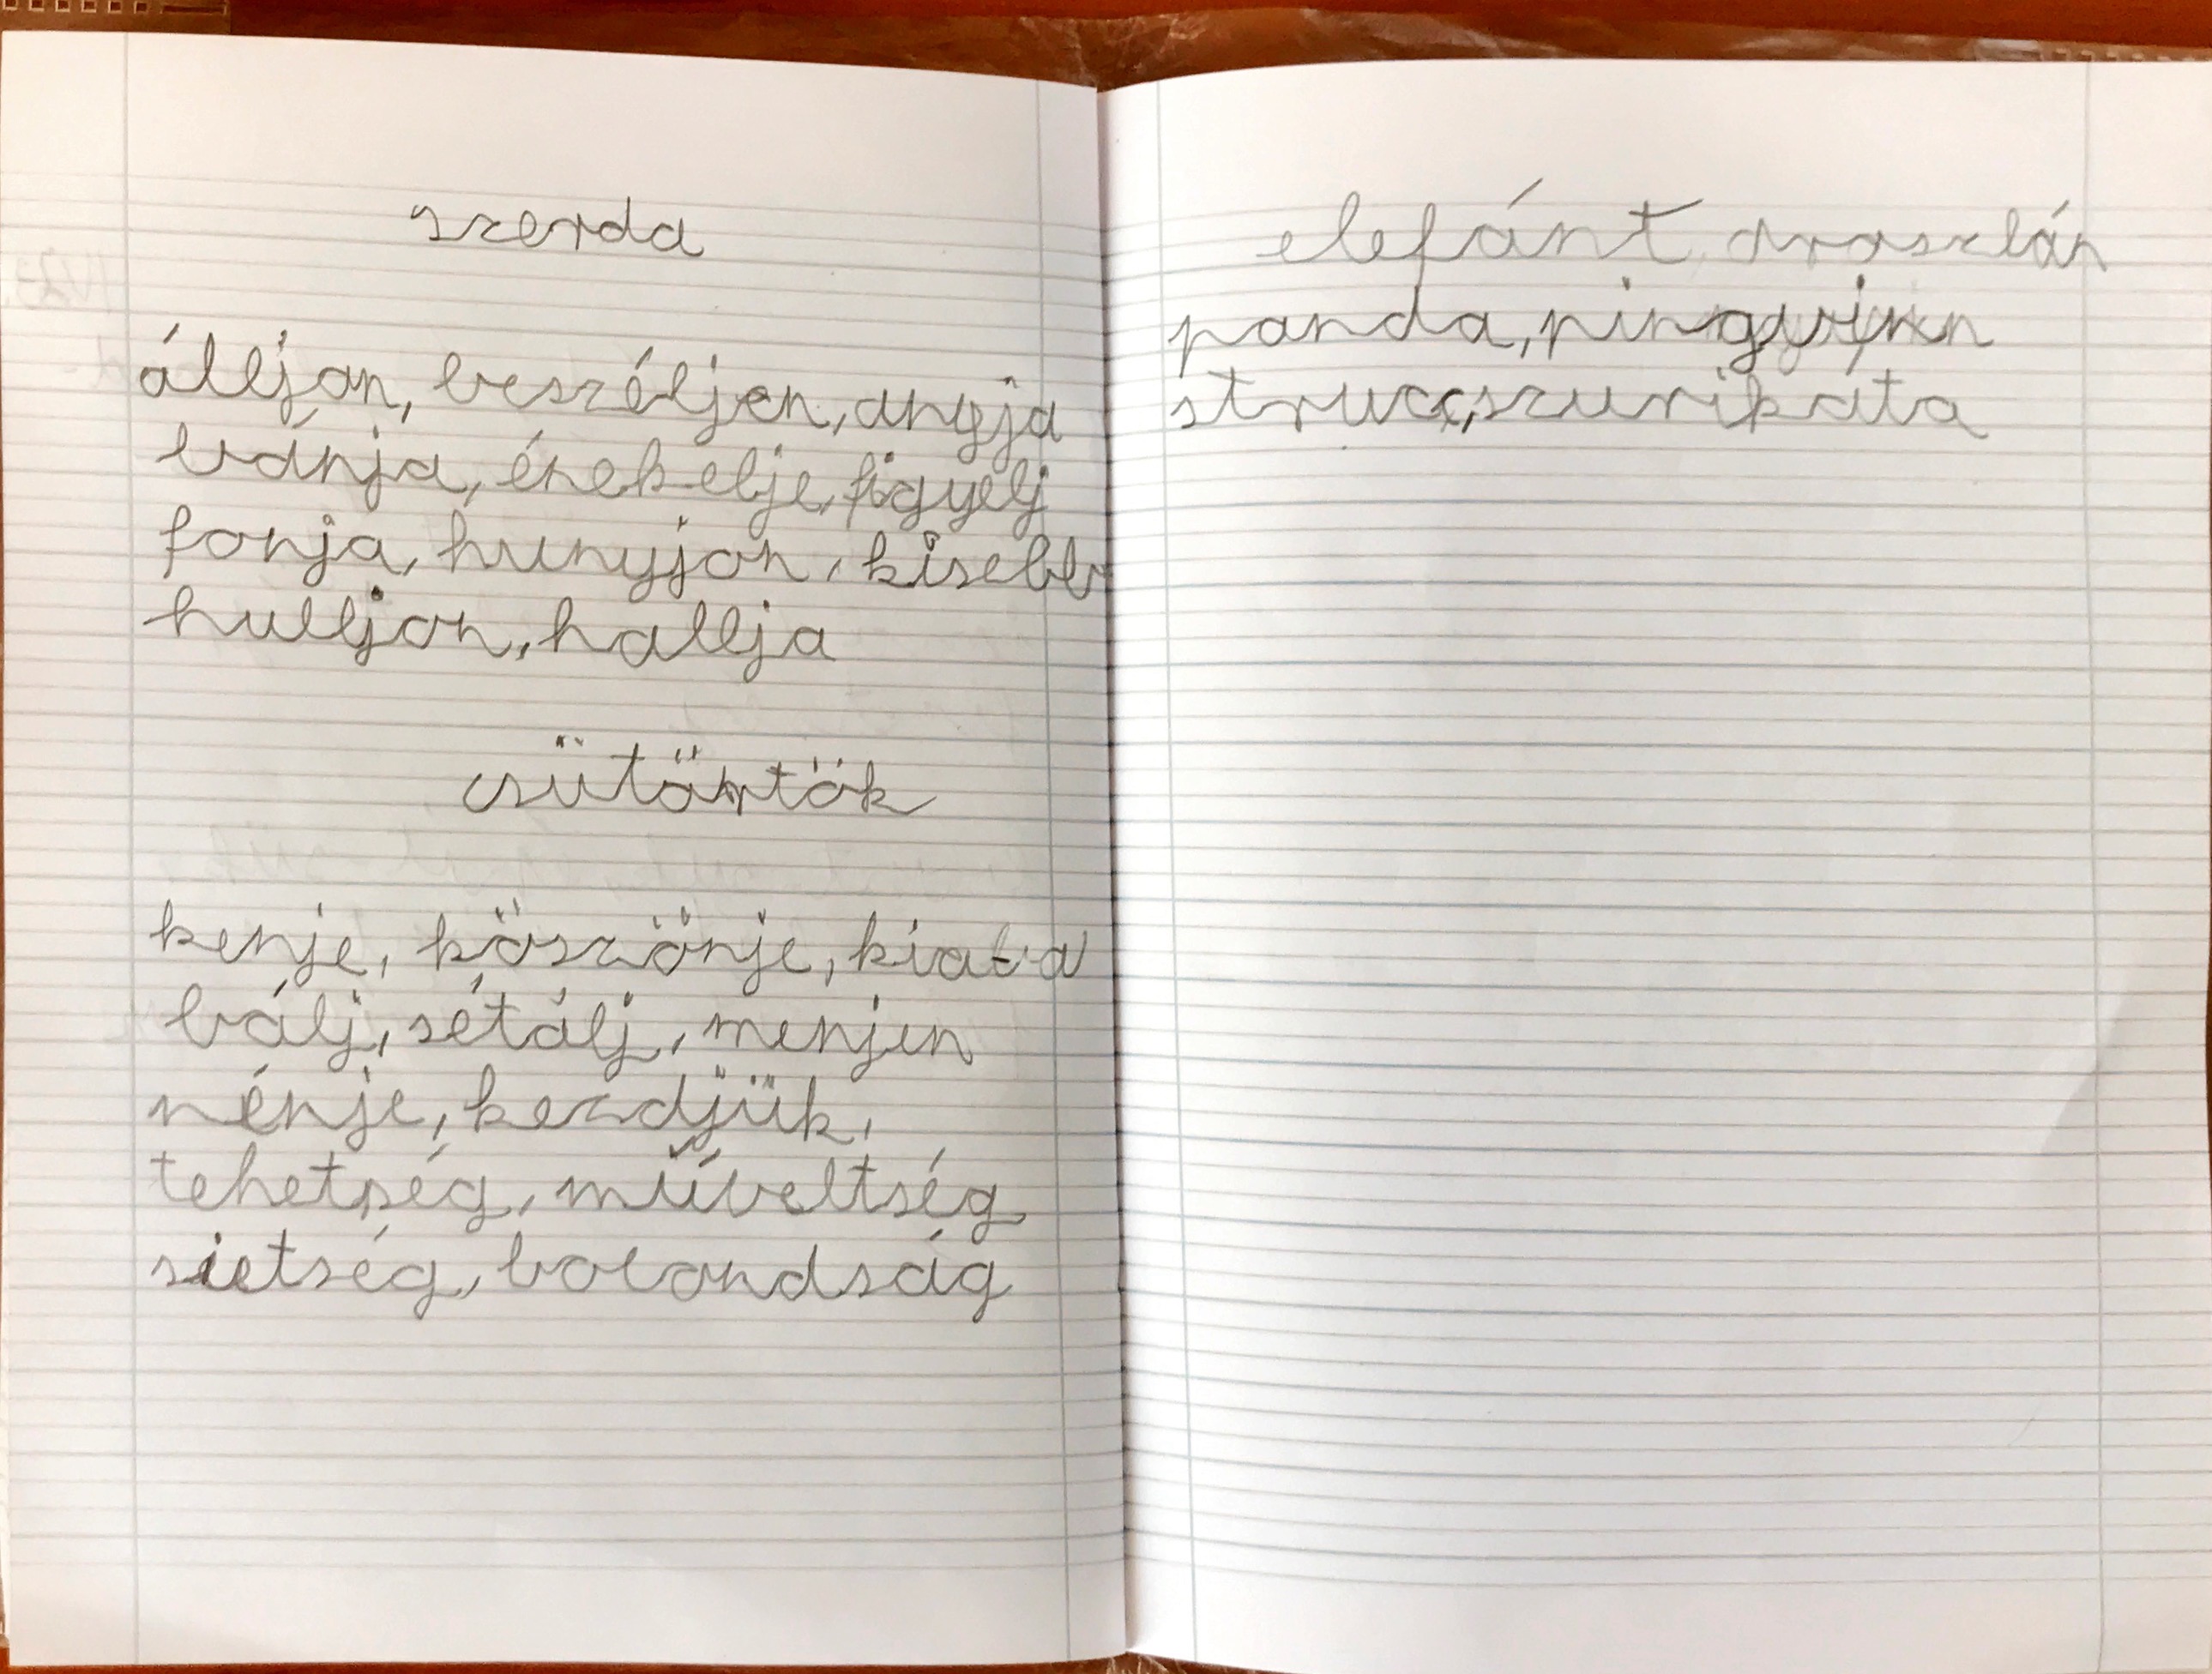 szerda
álljon, beszéljen, anyja
bánja, énekelje, figyelj
fonja, hunyjon, kisebb
hulljon, hallja
csütörtök
kenje, köszönje, kiala
bálj, sétálj, menjen
nénje, kezdjük,
tehetség, műveltség
sietség, bolondság
elefánt, oroszlán
panda, pingvin
strucc, szurikáta